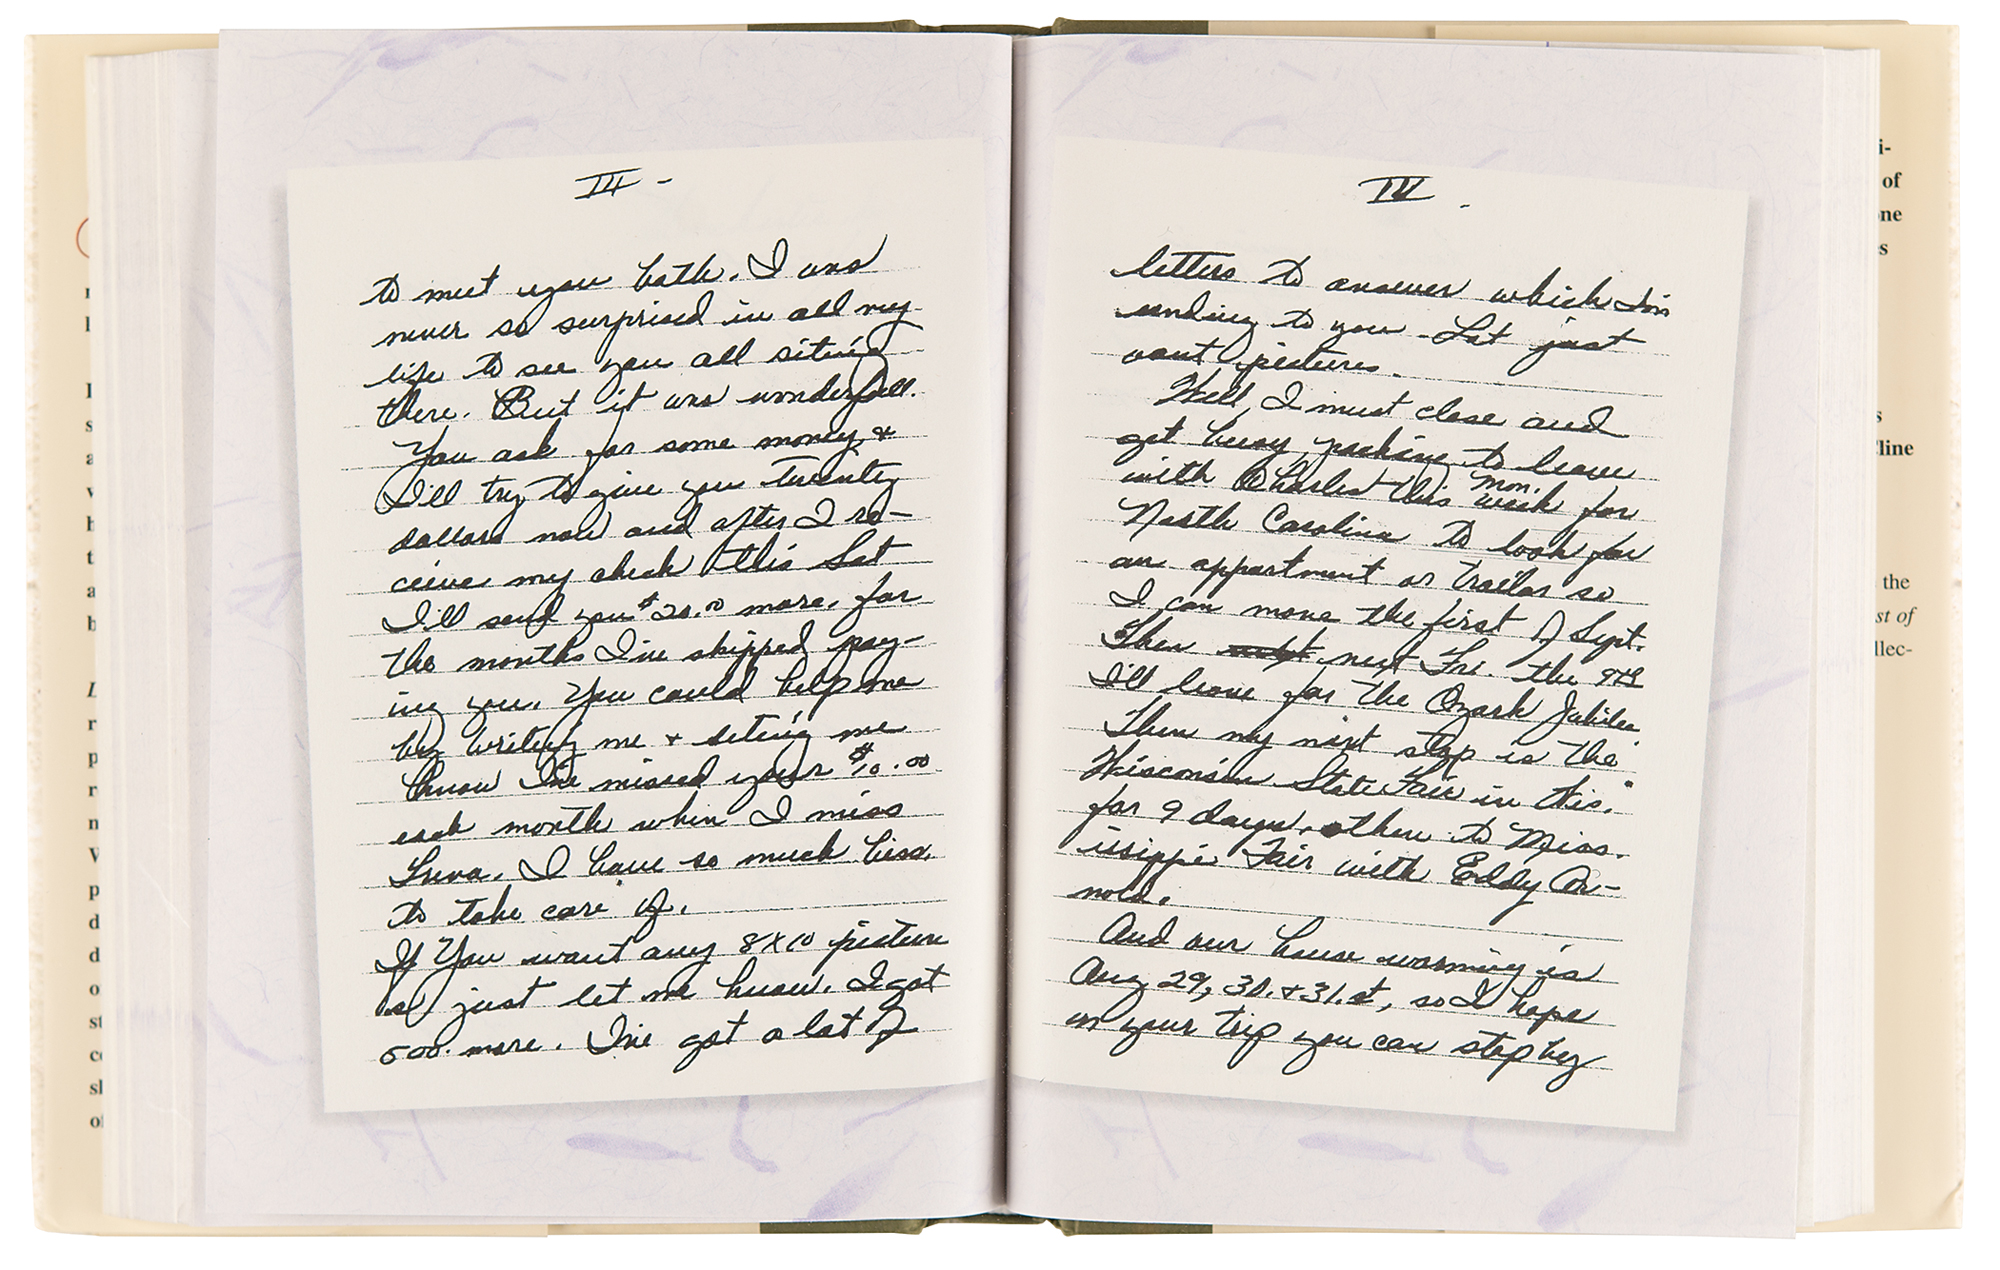 III -
to meet you both. I was
never so surprised in all my
life to see you all siting
there. But it was wonderfull.
You ask for some money &
I'll try to give you twenty
dollars now and after I re-
ceive my check this Sat
I'll send you $20.00 more, for
the months I've skipped pay-
ing you. You could help me
by writing me & leting me
know I've missed your $10.00
each month when I miss
Treva. I have so much biss.
to take care of.
If You want any 8x10 picture
s just let me know. I got
500 more. I've got a lot of
IV -
letters to answer which I'm
sending to you. Lot just
want pictures.
Well, I must close and
get busy packing to leave
with Charles this Mon. week for
North Carolina to look for
an appartment or trailor so
I can move the first of Sept.
Then next Fri. the 9th
I'll leave for the Ozark Jubilee
Then my next stop is the
Wisconsin State Fair in Wis.
for 9 days, then to Miss.
issippi Fair with Eddy Ar-
nold.
And our house warming is
Aug 29, 30. & 31.st, so I hope
on your trip you can stop by
i-
of
one
s
s
Cline
the
st of
llec-